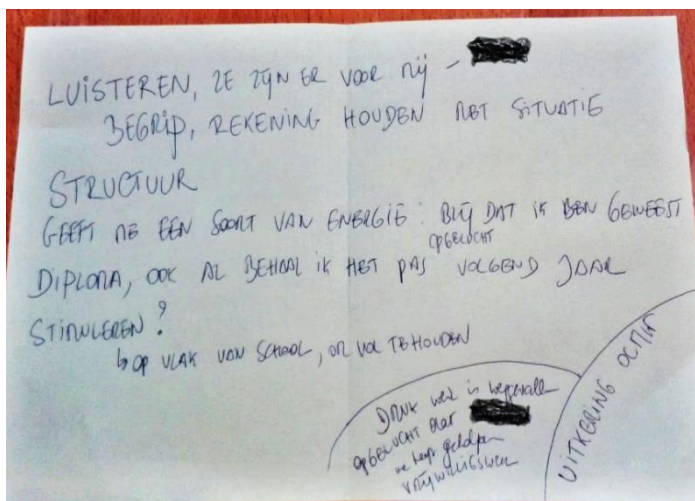 LUISTEREN, ZE ZIJN ER VOOR MIJ -
BEGRIP, REKENING HOUDEN MET SITUATIE
STRUCTUUR
GEEFT ME EEN SOORT VAN ENERGIE : BLIJ DAT IK BEN GEWEEST
OPGELUCHT
DIPLOMA, OOK AL BEHAAL IK HET PAS VOLGEND JAAR
STIMULEREN ?
↳ OP VLAK VAN SCHOOL, OM VOL TE HOUDEN
DRUK werk is weggevallen
OPGELUCHT DAT
me heeft geholpen
VRIJWILLIGSWERK
UITKERING OCMW